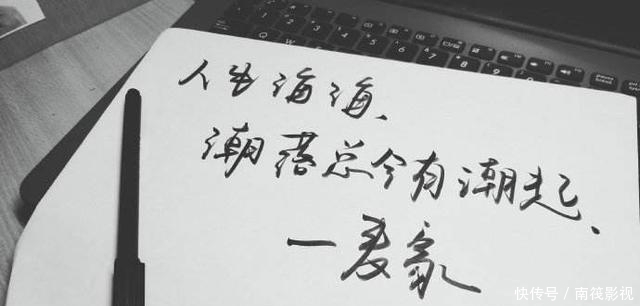 人生海海、
潮落总会有潮起、
—麦家
快传号 / 南筏影视